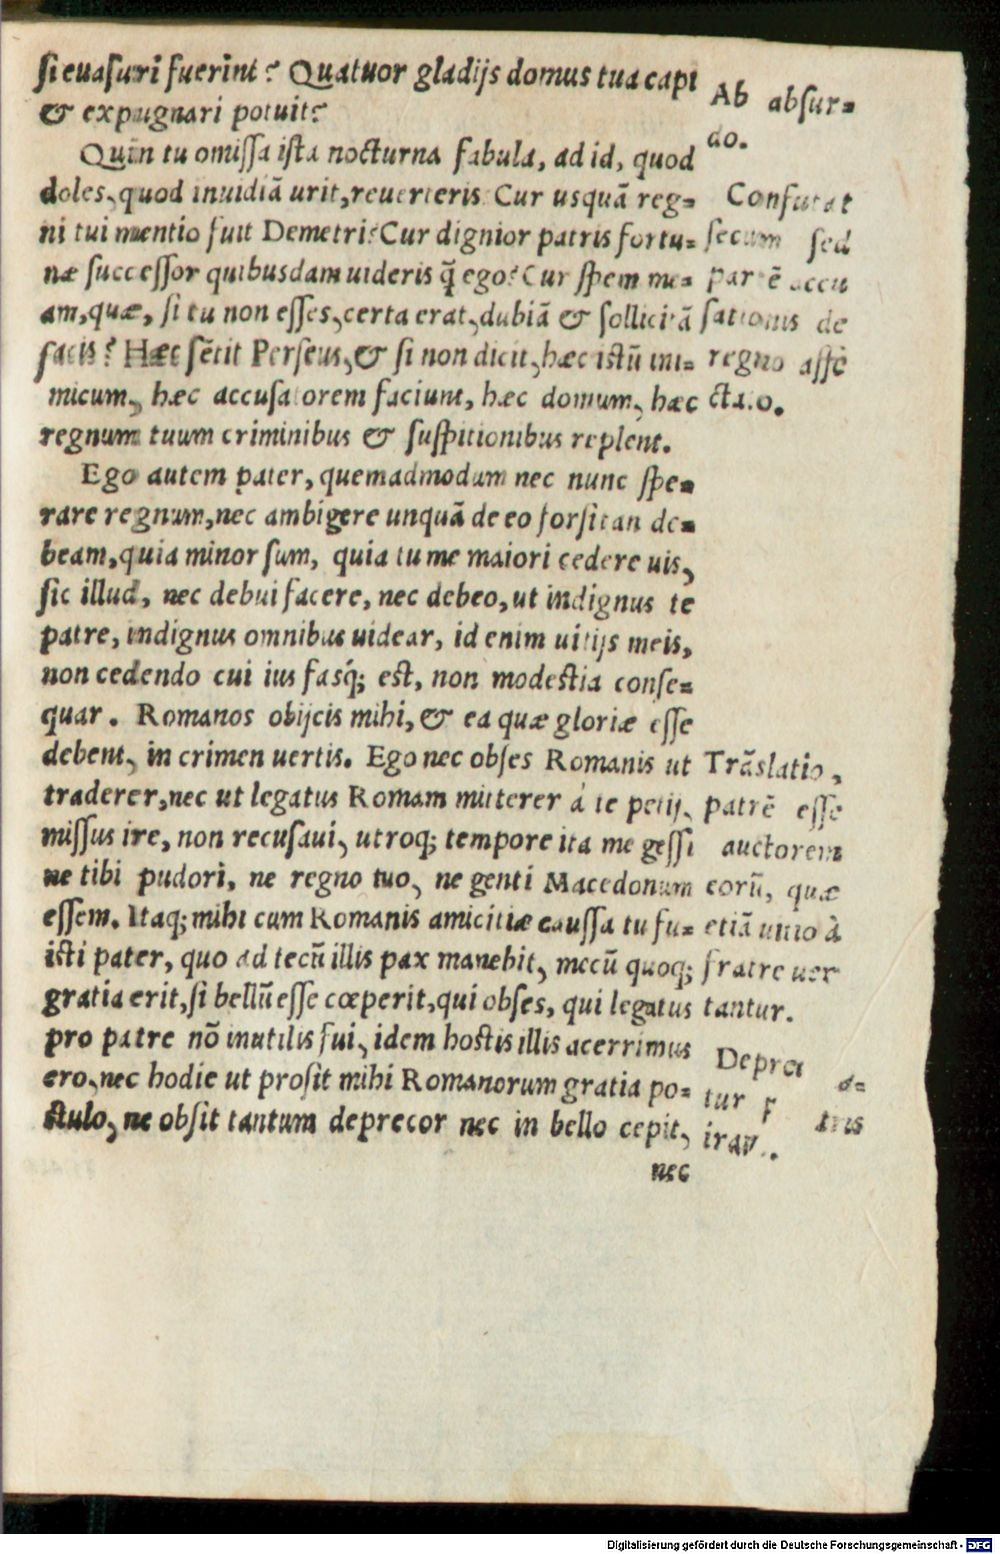 si euasuri fuerint? Quatuor gladijs domus tua capi
& expugnari potuit?
Quin tu omissa ista nocturna fabula, ad id, quod
doles, quod inuidiā urit, reuerteris. Cur usquā reg=
ni tui mentio fuit Demetri? Cur dignior patris fortu=
næ successor quibusdam uideris q̄ ego? Cur spem me=
am, quæ, si tu non esses, certa erat, dubiā & sollicitā
facis? Hæc sētit Perseus, & si non dicit, hæc istū ini=
micum, hæc accusatorem faciunt, hæc domum, hæc
regnum tuum criminibus & suspitionibus replent.
Ego autem pater, quemadmodum nec nunc spe=
rare regnum, nec ambigere unquā de eo forsitan de=
beam, quia minor sum, quia tu me maiori cedere uis,
sic illud, nec debui facere, nec debeo, ut indignus te
patre, indignus omnibus uidear, id enim uitijs meis,
non cedendo cui ius fasq; est, non modestia conse=
quar. Romanos obijcis mihi, & ea quæ gloriæ esse
debent, in crimen uertis. Ego nec obses Romanis ut
traderer, nec ut legatus Romam mitterer à te petij,
missus ire, non recusaui, utroq; tempore ita me gessi
ne tibi pudori, ne regno tuo, ne genti Macedonum
essem. Itaq; mihi cum Romanis amicitiæ caussa tu fu=
isti pater, quo ad tecū illis pax manebit, mecū quoq;
gratia erit, si bellū esse cœperit, qui obses, qui legatus
pro patre nō inutilis fui, idem hostis illis acerrimus
ero, nec hodie ut prosit mihi Romanorum gratia po=
stulo, ne obsit tantum deprecor nec in bello cepit,
nec
Ab absur=
do.
Confutat
secum sed
partē accu
sationis de
regno affe
ctato.
Trāslatio,
patrē esse
auctorem
eorū, quæ
etiā uitio à
fratre uer
tantur.
tur
tris
Digitalisierung gefördert durch die Deutsche Forschungsgemeinschaft - DFG